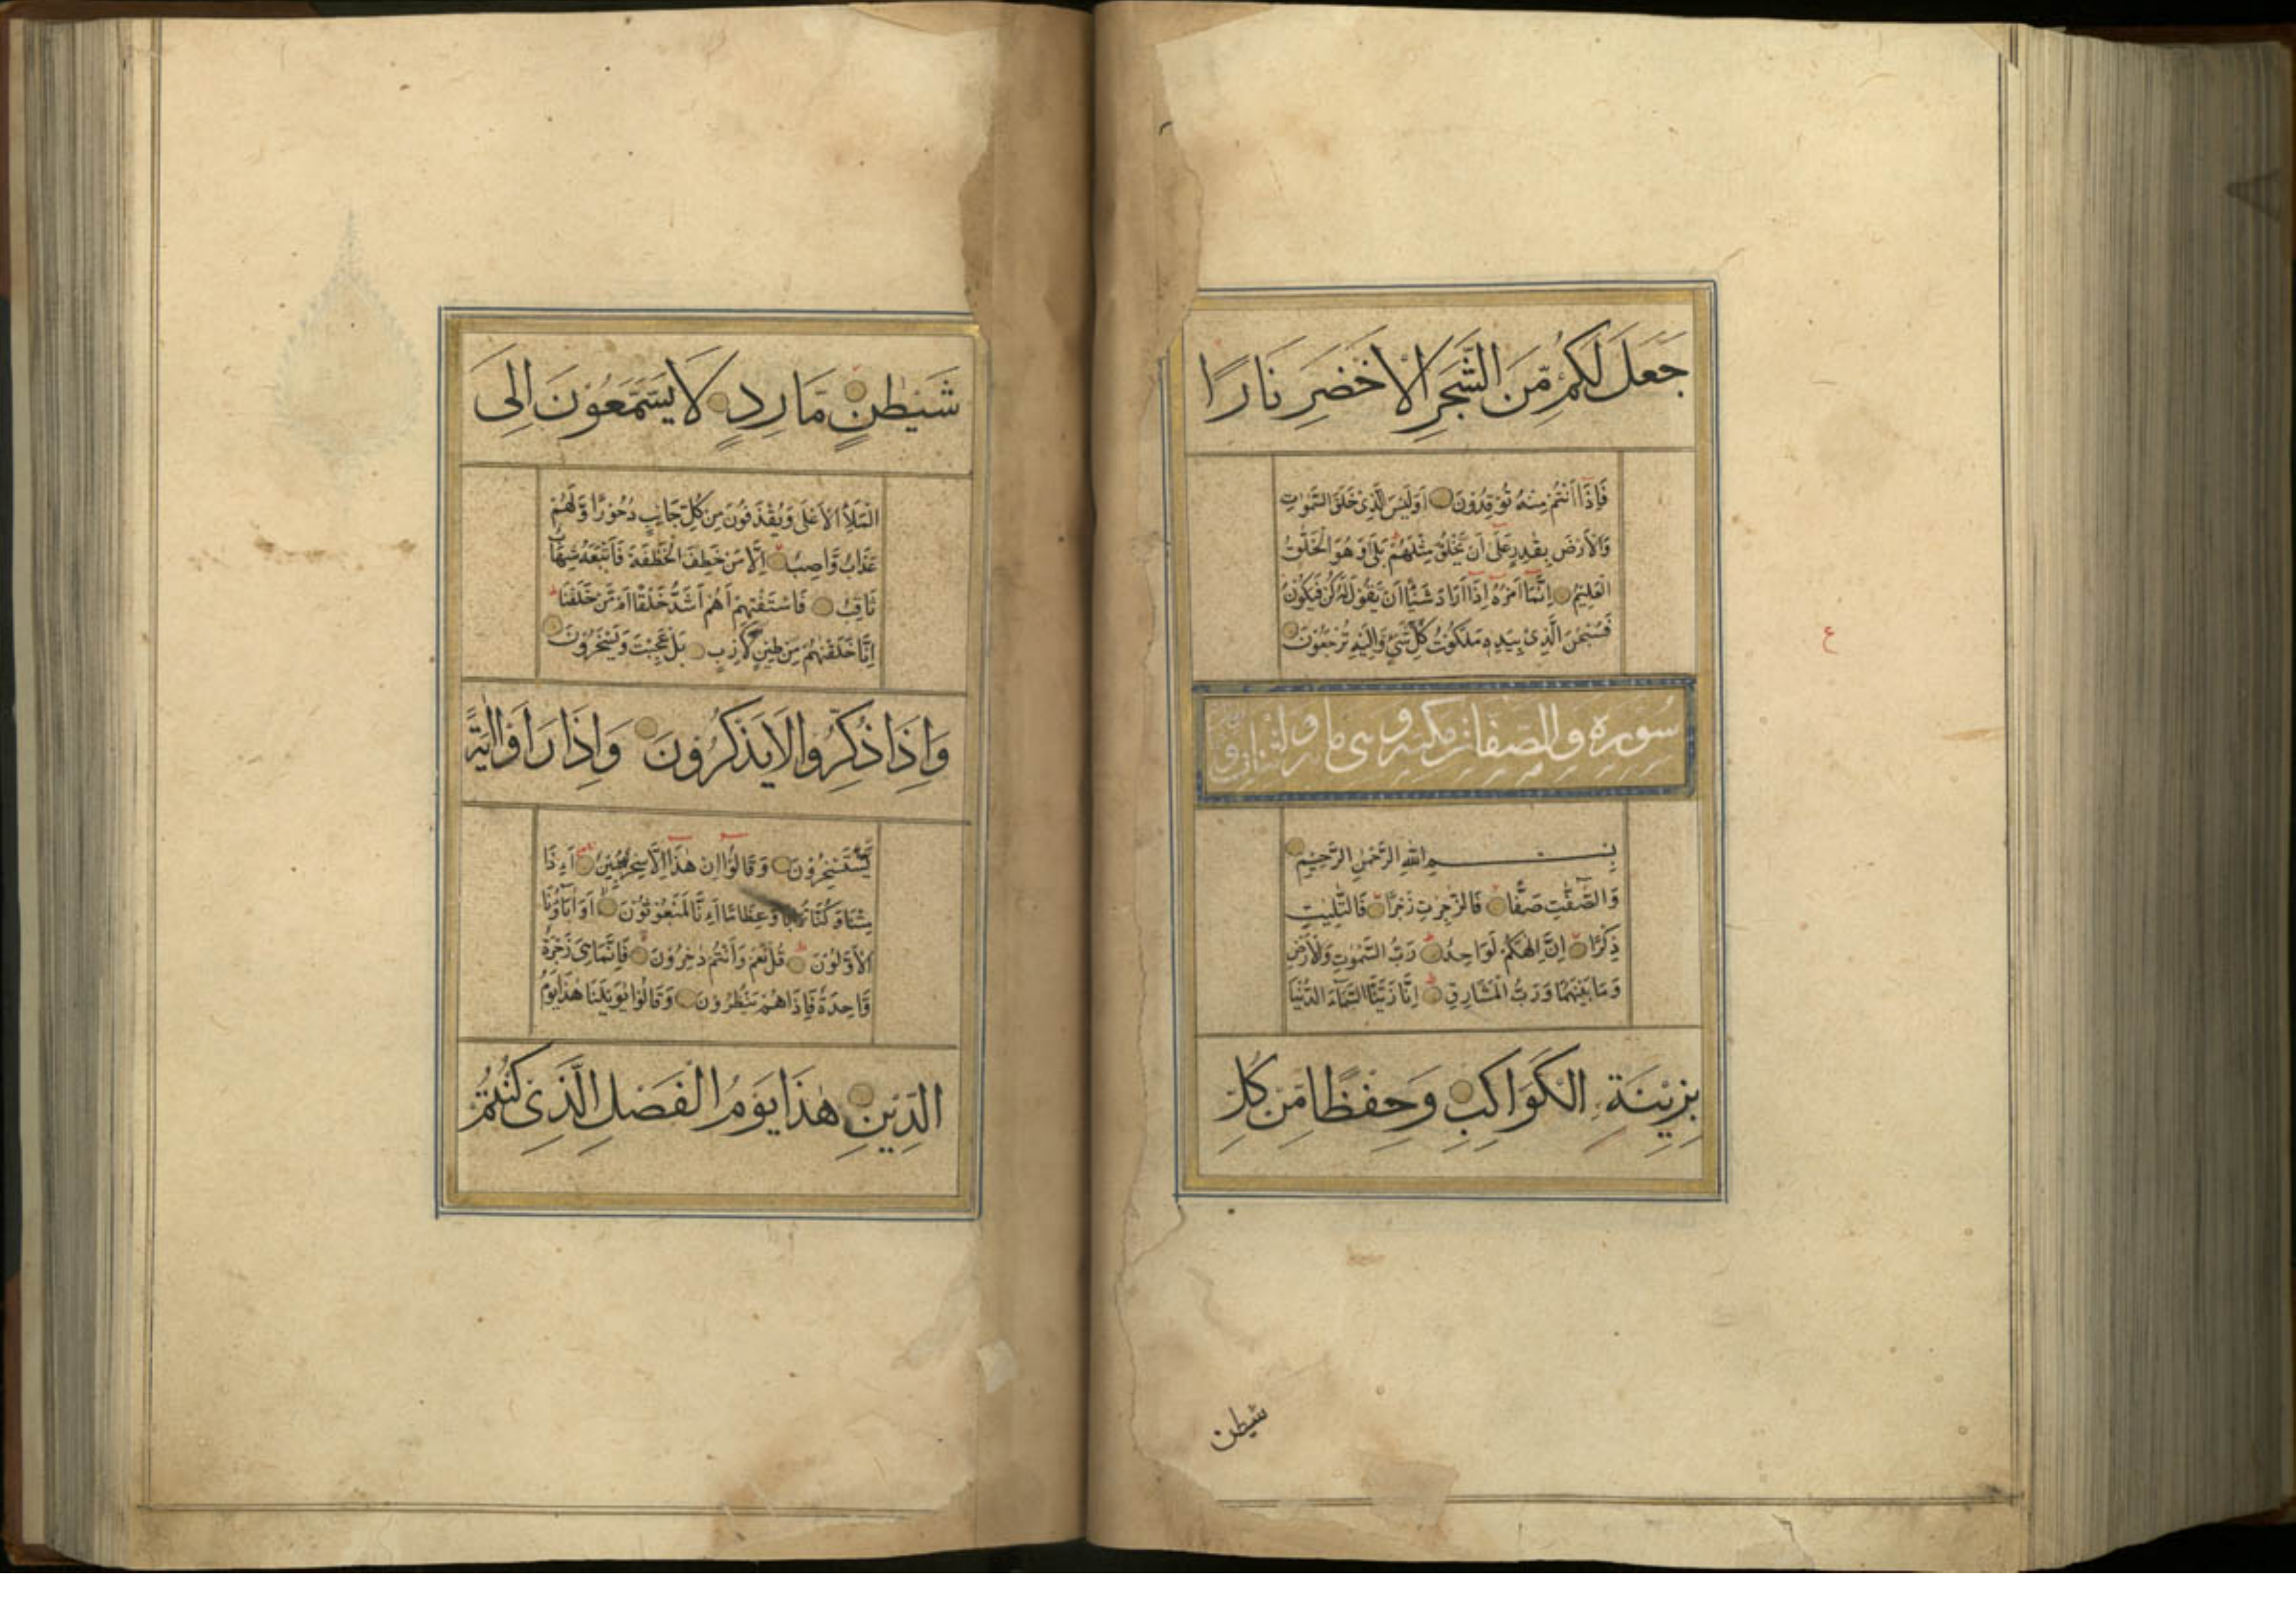 جَعَلَ لَكُمْ مِّنَ الشَّجَرِ الْاَخْضَرِ نَارًا
فَاِذَآ اَنْتُمْ مِنْهُ تُوْقِدُوْنَ اَوَلَيْسَ الَّذِىْ خَلَقَ السَّمٰوٰتِ
وَالْاَرْضَ بِقٰدِرٍ عَلٰٓى اَنْ يَّخْلُقَ مِثْلَهُمْ بَلٰى وَهُوَ الْخَلّٰقُ
الْعَلِيْمُ اِنَّمَآ اَمْرُهٗٓ اِذَآ اَرَادَ شَيْئًا اَنْ يَّقُوْلَ لَهٗ كُنْ فَيَكُوْنُ
فَسُبْحٰنَ الَّذِىْ بِيَدِهٖ مَلَكُوْتُ كُلِّ شَىْءٍ وَّاِلَيْهِ تُرْجَعُوْنَ
ع
سورة والصفات مكية وهى ماية و اثنان و
بِسْمِ اللهِ الرَّحْمٰنِ الرَّحِيْمِ
وَالصّٰٓفّٰتِ صَفًّا فَالزّٰجِرٰتِ زَجْرًا فَالتّٰلِيٰتِ
ذِكْرًا اِنَّ اِلٰهَكُمْ لَوَاحِدٌ رَبُّ السَّمٰوٰتِ وَالْاَرْضِ
وَمَا بَيْنَهُمَا وَرَبُّ الْمَشَارِقِ اِنَّا زَيَّنَّا السَّمَآءَ الدُّنْيَا
بِزِيْنَةِ الْكَوَاكِبِ وَحِفْظًا مِّنْ كُلِّ
شيطن
شَيْطٰنٍ مَّارِدٍ لَا يَسَّمَّعُوْنَ اِلَى
الْمَلَاِ الْاَعْلٰى وَيُقْذَفُوْنَ مِنْ كُلِّ جَانِبٍ دُحُوْرًا وَّلَهُمْ
عَذَابٌ وَّاصِبٌ اِلَّا مَنْ خَطِفَ الْخَطْفَةَ فَاَتْبَعَهٗ شِهَابٌ
ثَاقِبٌ فَاسْتَفْتِهِمْ اَهُمْ اَشَدُّ خَلْقًا اَمْ مَّنْ خَلَقْنَا
اِنَّا خَلَقْنٰهُمْ مِّنْ طِيْنٍ لَّازِبٍ بَلْ عَجِبْتَ وَيَسْخَرُوْنَ
وَاِذَا ذُكِّرُوْا لَا يَذْكُرُوْنَ وَاِذَا رَاَوْا اٰيَةً
يَّسْتَسْخِرُوْنَ وَقَالُوْٓا اِنْ هٰذَآ اِلَّا سِحْرٌ مُّبِيْنٌ ءَاِذَا
مِتْنَا وَكُنَّا تُرَابًا وَّعِظَامًا ءَاِنَّا لَمَبْعُوْثُوْنَ اَوَ اٰبَآؤُنَا
الْاَوَّلُوْنَ قُلْ نَعَمْ وَاَنْتُمْ دٰخِرُوْنَ فَاِنَّمَا هِىَ زَجْرَةٌ
وَّاحِدَةٌ فَاِذَا هُمْ يَنْظُرُوْنَ وَقَالُوْا يٰوَيْلَنَا هٰذَا يَوْمُ
الدِّيْنِ هٰذَا يَوْمُ الْفَصْلِ الَّذِىْ كُنْتُمْ